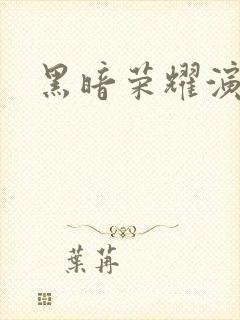 黑暗荣耀演
葉苒